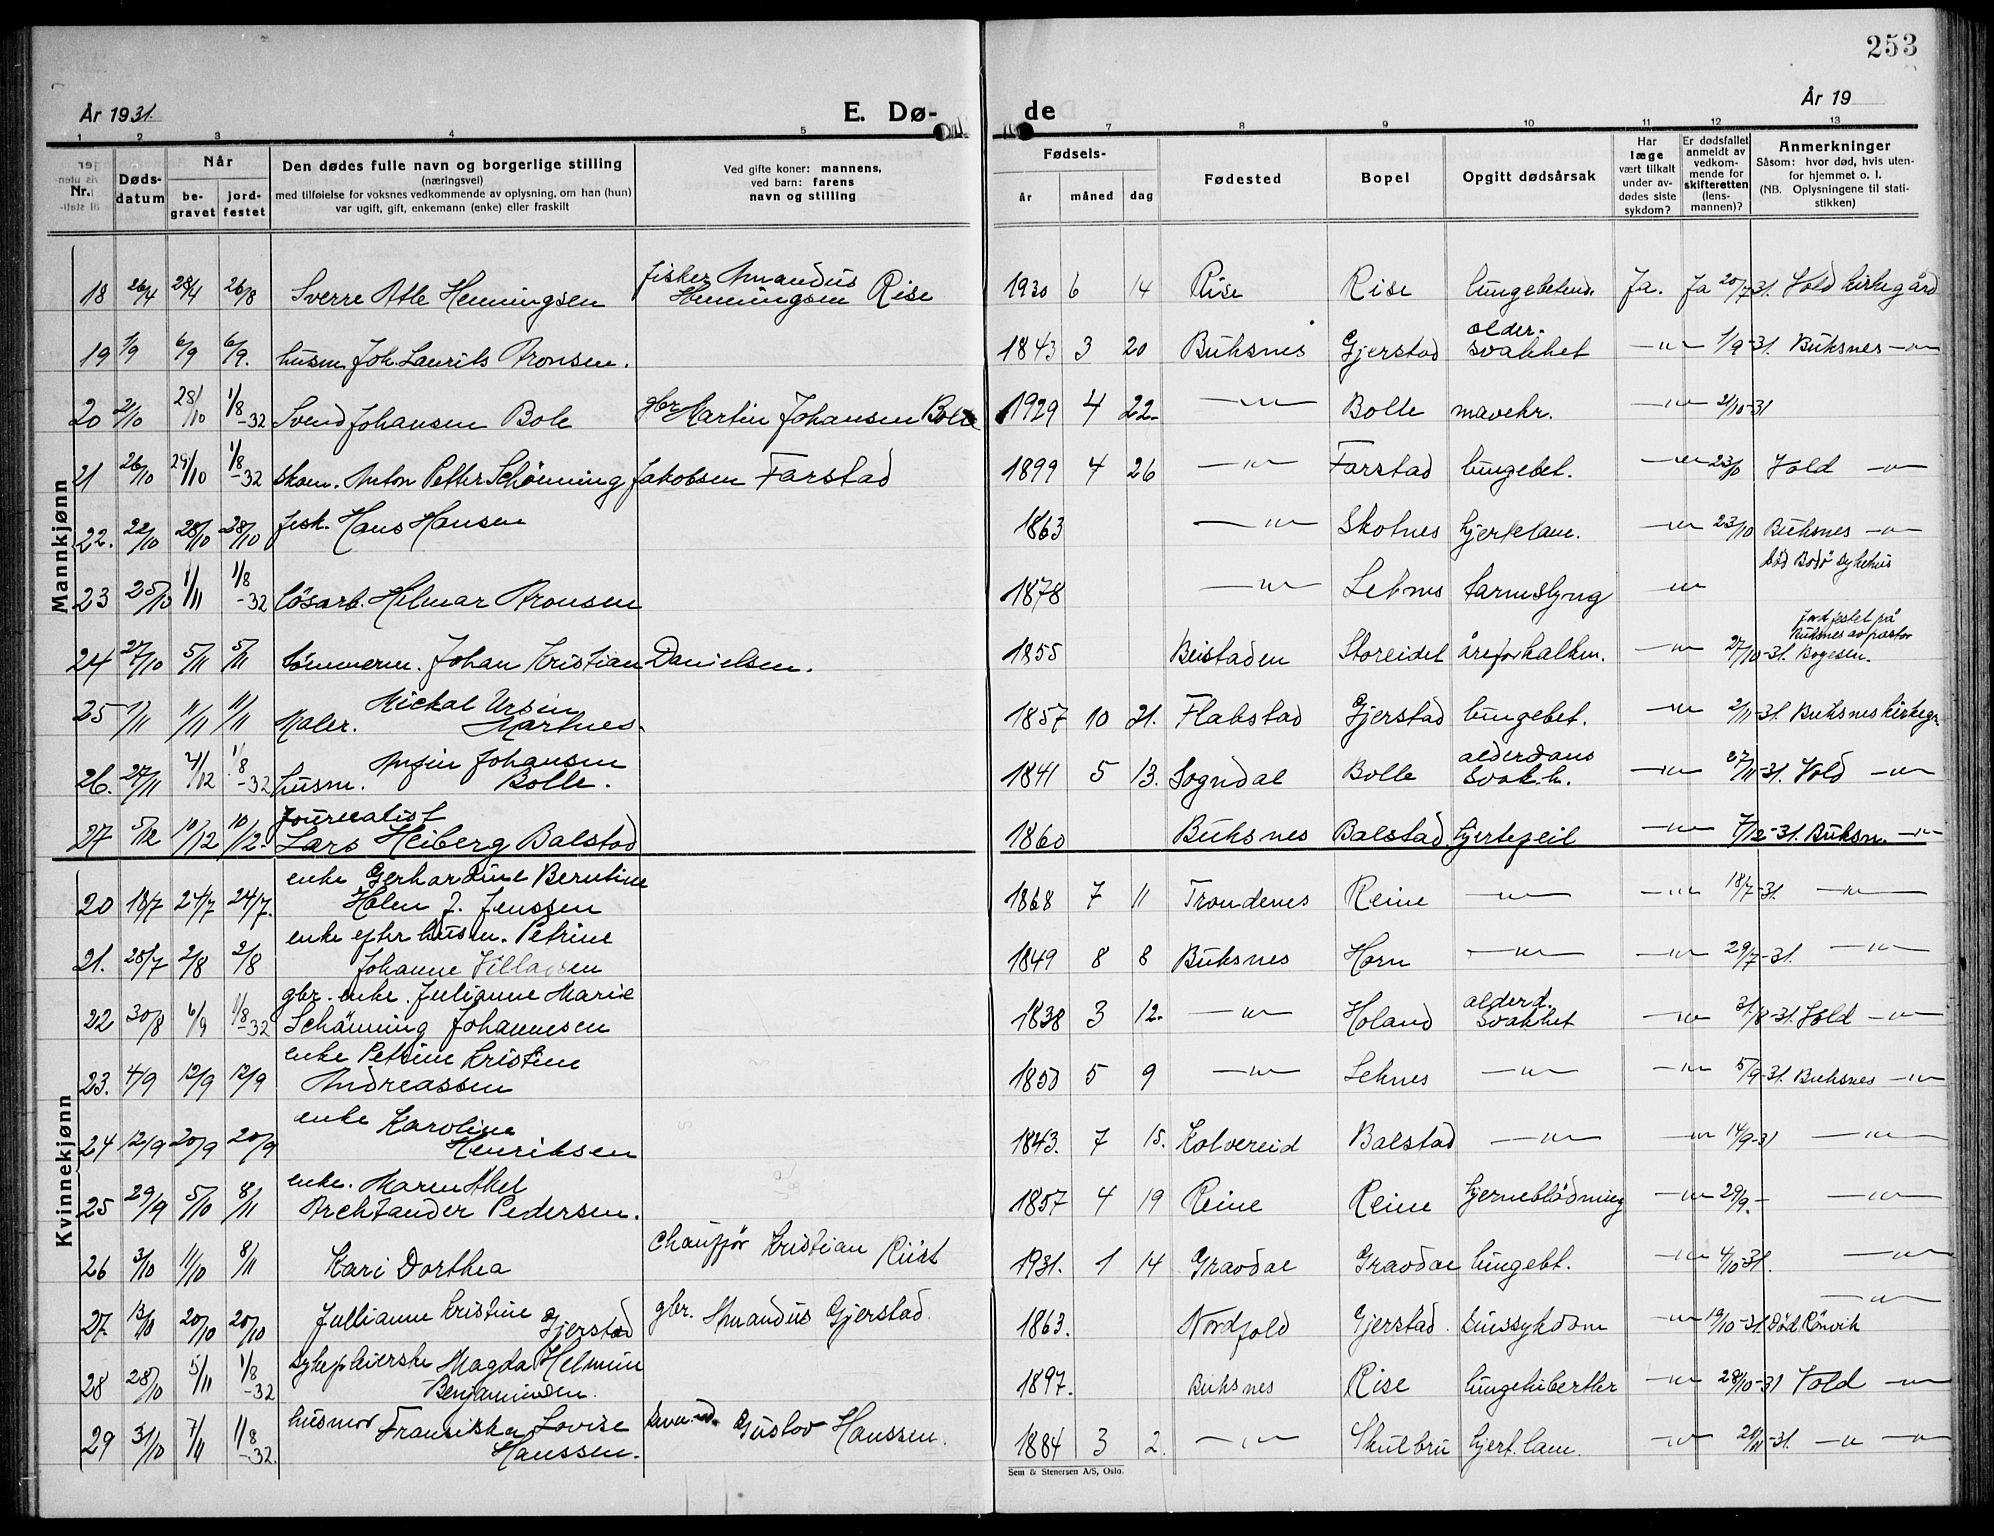 253
År 1931.
E. Dø-
de
År 19
1 2 3 4 5 7 8 9 10 11 12 13
Nr.
Døds-
datum
Når
be-
gravet
jord-
festet
Den dødes fulle navn og borgerlige stilling
(næringsvei)
med tilføielse for voksnes vedkommende av oplysning, om han (hun)
var ugift, gift, enkemann (enke) eller fraskilt
Ved gifte koner: mannens,
ved barn: farens
navn og stilling
Fødsels-
år måned dag
Fødested
Bopel
Opgitt dødsårsak
Har
læge
vært tilkalt
under av-
dødes siste
sykdom?
Er dødsfallet
anmeldt av
vedkom-
mende for
skifteretten
(lens-
mannen)?
Anmerkninger
Såsom: hvor død, hvis uten-
for hjemmet o. l.
(NB. Oplysningene til stati-
stikken)
Mannkjønn
18 26/4 28/4 26/8 Sverre Atle Henningsen fisker Amandus Henningsen Rise 1930 6 14 Rise Rise lungebetend. Ja. Ja 20/7-31. Vold kirkegård
19 1/9 6/9 6/9. husm. Joh. Laurits Aronsen. 1843 3 20 Buksnes Gjerstad alder-svakhet —"— 1/9-31. Buksnes —"—
20 2/10 28/10 1/8-32 Svend Johansen Bole gbr Martin Johansen Bolle 1929 4 22 —"— Bolle mavekr. —"— 21/10-31
21 26/10 29/10 1/8-32 skom. Anton Petter Schönning Jakobsen Farstad 1899 4 26 —"— Farstad lungebet. —"— Vold —"—
22. 22/10 28/10 28/10 fisk. Hans Hansen 1863 —"— Skotnes hjertelam. —"— 23/10 Buksnes —"—
23 25/10 1/11 1/8-32 lösarb. Helmar Aronsen 1878 —"— Leknes tarmslyng —"— Död Bodö sykehus
24 27/10 5/11 5/11 tömmerm. Johan Kristian Danielsen. 1855 Beistaden Storeidet åreforkalkn. —"— 27/10-31. Jordfestet på Buksnes av pastor Bogesen.
25 1/11 11/11 11/11 Maler. Mickal Ursin Martnes. 1857 10 21. Flakstad Gjerstad lungebet. —"— 2/11-31. Buksnes kirkeg.
26. 27/11 4/12 1/8-32 husm. Anfin Johansen Bolle. 1841 5 13. Sogndal Bolle alderdoms svakh. —"— 27/11-31. Vold —"—
27 5/12 10/12 10/12. Journalist Lars Heiberg Balstad 1860 Buksnes Balstad hjertefeil —"— 7/12-31. Buksn. —"—
Kvinnekjønn
20 18/7 24/7 24/7. enke Gerhardine Berntine Holen J. Jenssen 1868 7 11 Trondenes Reine —"— —"— 18/7-31. —"—
21. 28/7 2/8 2/8 enke efter husm. Petrine Johanne 1849 8 8 Buksnes Horn —"— —"— 29/7-31. —"—
22 30/8 6/9 1/8-32 gbr. enke. Julianne Marie Schönning Johannesen 1838 3 12. —"— Holand alderd. svakhet —"— 31/8-31. Vold —"—
23. 4/9 12/9 12/9 enke Petrine Kristine Andreassen 1850 5 9 —"— Leknes —"— —"— 5/9-31. Buksnes —"—
24 12/9 20/9 20/9 enke Karoline Henriksen 1843. 7 15. Kolvereid Balstad —"— —"— 14/9-31 —"—
25 29/9 5/10 8/11 enke. Maren Pedersen. 1857 4 19 Reine Reine hjerneblödning —"— 29/9.- —"—
26 3/10 11/10 8/11 Kari Dorthea Chauffør Kristian Riise 1931. 1 14 Gravdal Gravdal lungebt. —"— 4/10-31. —"—
27. 13/10 20/10 20/10 Jullianne Kristine Gjerstad gbr. Amandus Gjerstad. 1863. Nordfold Gjerstad. sinssykdom —"— 19/10-31. —"— Död Rönvik
28 28/10 5/11 1/8-32 sykepleierske Magda Helmine Benjaminsen. 1897. Buksnes Rise lungetuberkler —"— 28/10-31 Vold —"—
29 31/10 7/11 1/8-32. husmor Fransiska Lovise Hanssen. Gustav Hanssen. 1884 3 2. —"— Skulbru hjert. lam. —"— -31. —"— —"—
Sem & Stenersen A/S, Oslo.